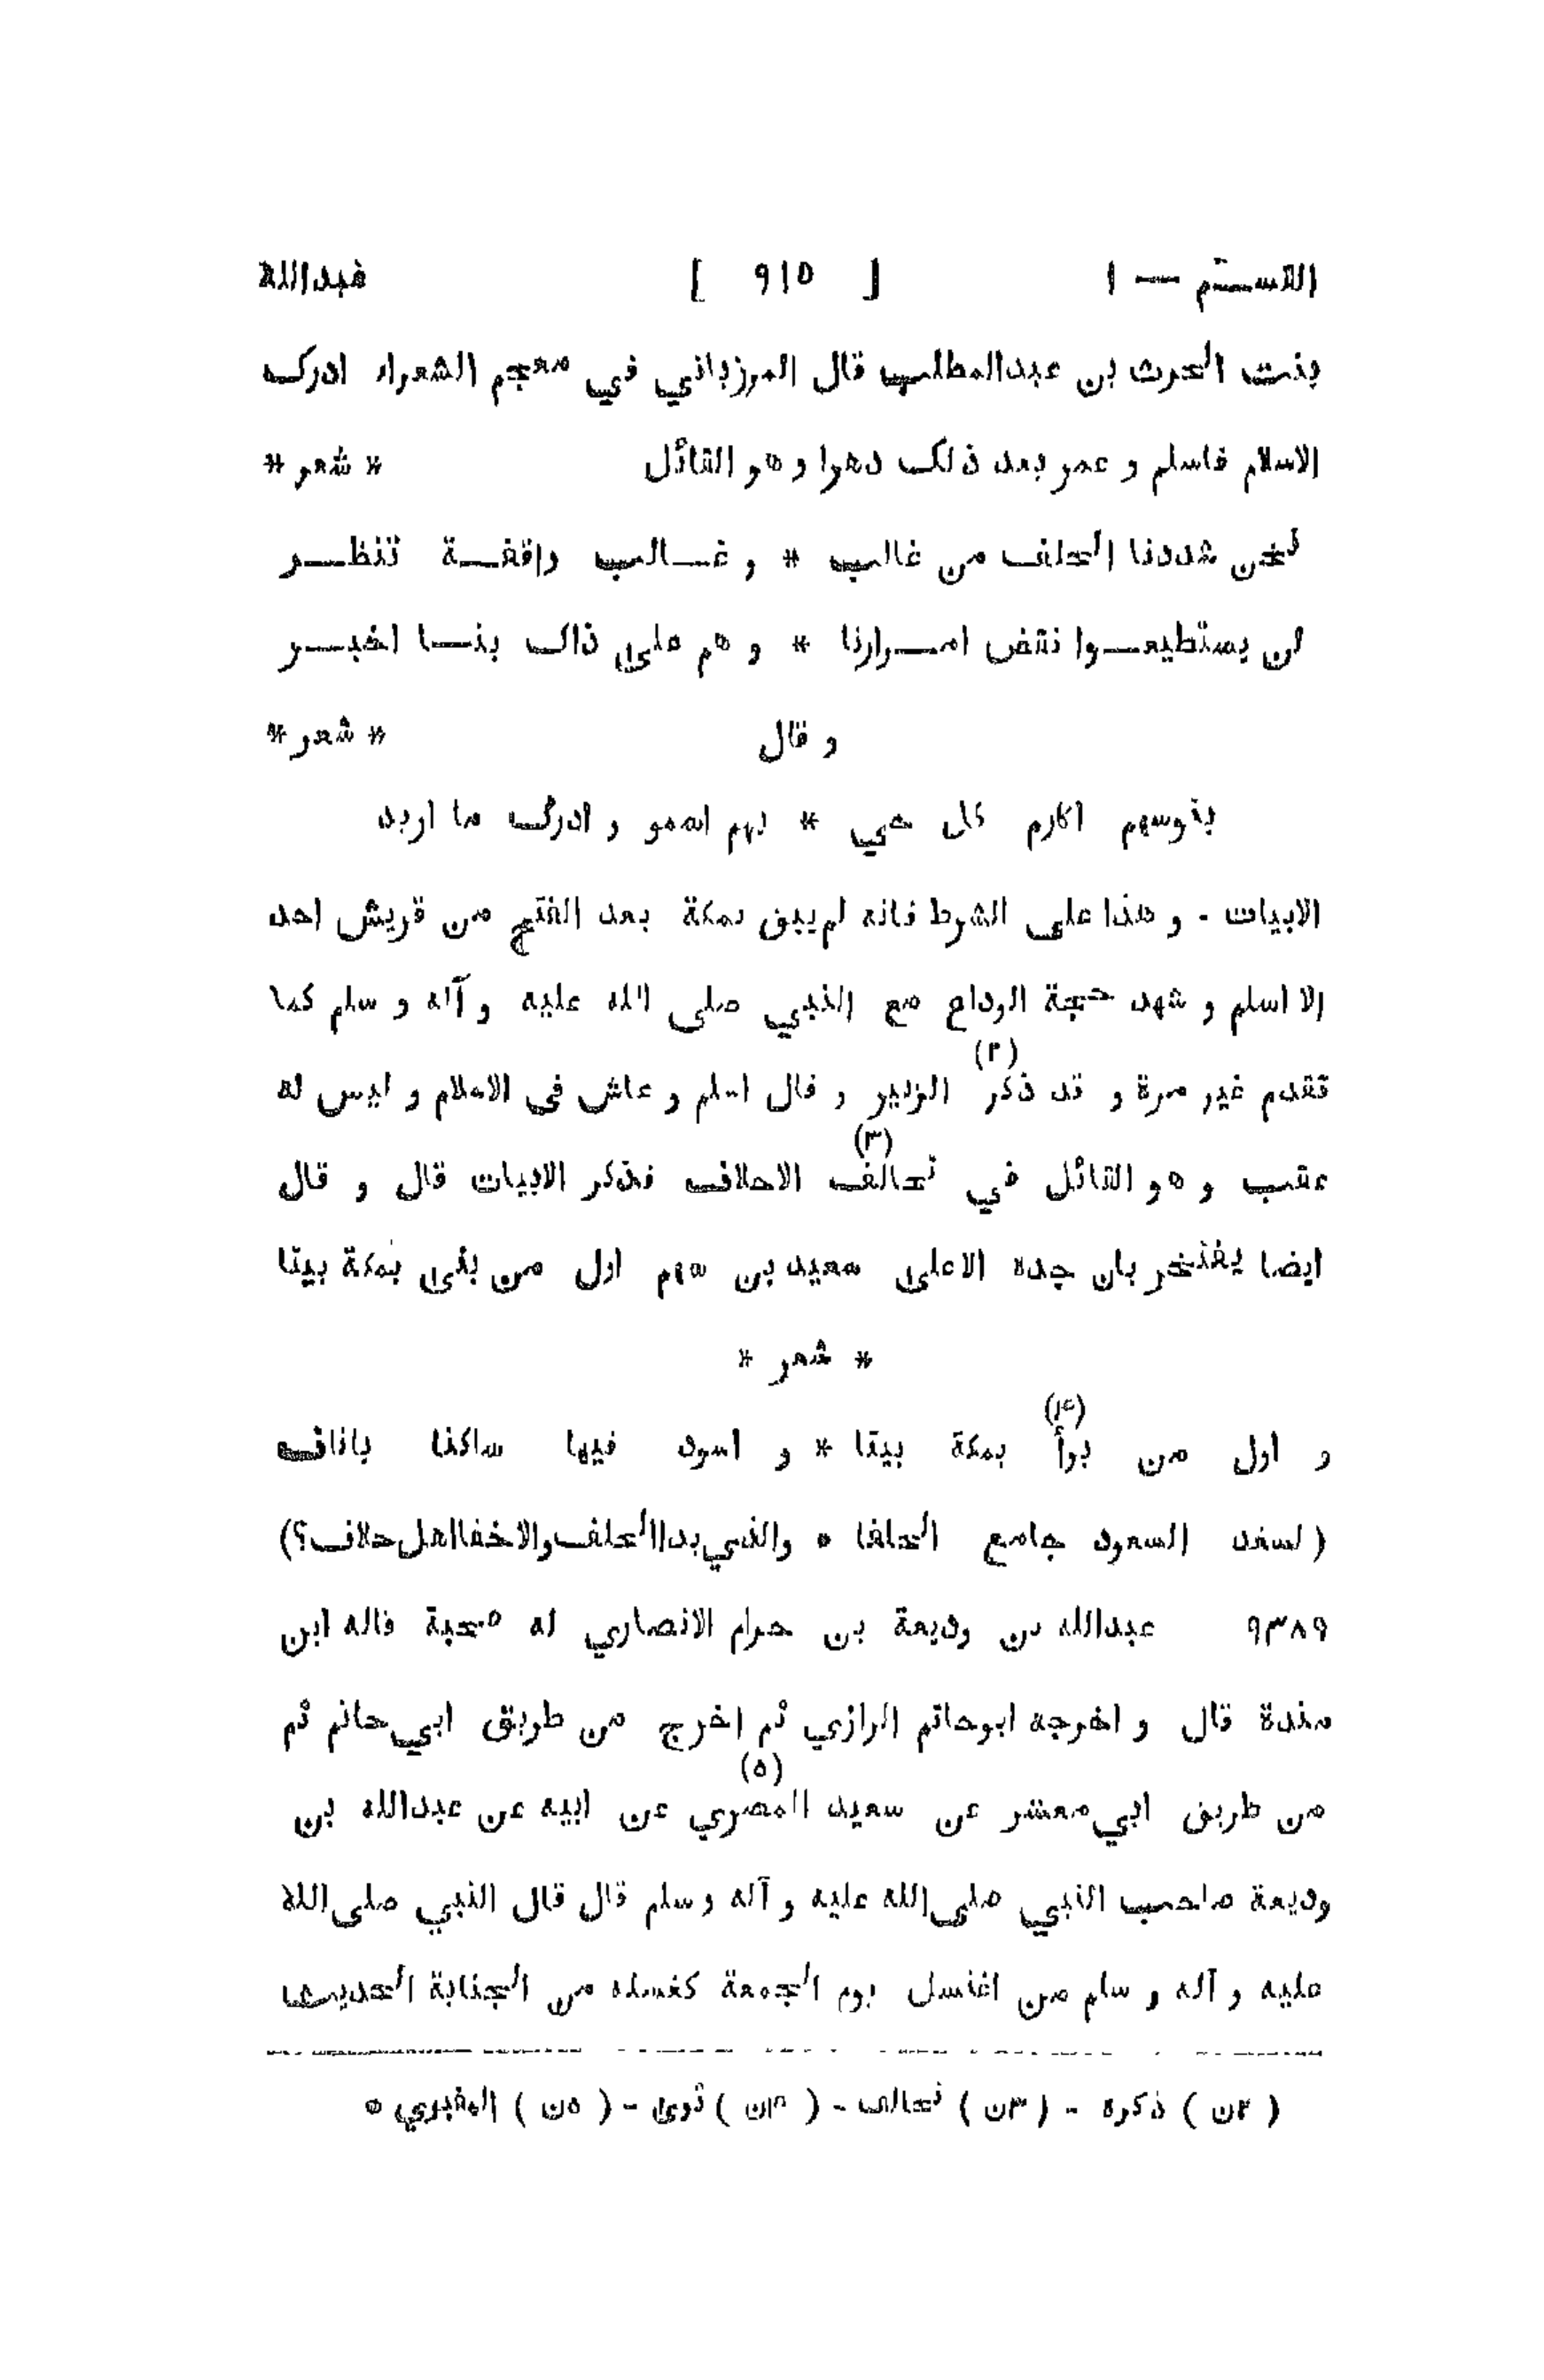 القسـتم — ا [ ٩١٥ ] عبدالله
بنت الحرث بن عبدالمطلب قال المرزباني في معجم الشعراء ادرك
الاسلام فاسلم و عمر بعد ذلك دهرا و هو القائل * شعر *
نحن شددنا الحلف من غالب * و غــالب واقفــة تنظــر
لن يستطيعــوا نقض امــرارنا * و هم على ذاك بنــا اخبــر
و قال * شعر *
بقوسهم اكارم كل حي * بهم اسمو و ادرك ما اريد
الابيات - و هذا على الشرط فانه لم يبق بمكة بعد الفتح من قريش احد
الا اسلم و شهد حجة الوداع مع النبي صلى الله عليه و آله و سلم كما
تقدم غير مرة و قد ذكر (٢) الزبير و قال اسلم و عاش في الاسلام و ليس له
عقب و هو القائل في تحالف (٣) الاحلاف فذكر الابيات قال و قال
ايضا يفتخر بان جده الاعلى سعيد بن سهم اول من بنى بمكة بيتا
* شعر *
و اول من برأ (۴) بمكة بيتا * و اسود فيها ساكنا باناف
( لسعد السعود جامع الحلفا * والذي بدا الحلف والاخفا اهل حلاف؟)
٩٣٨٩ عبدالله بن وديعة بن حرام الانصاري له صحبة قاله ابن
مندة قال و اخرجه ابوحاتم الرازي ثم اخرج من طريق ابي حاتم ثم
من طريق ابي معشر عن سعيد المصري (٥) عن ابيه عن عبدالله بن
وديعة صاحب النبي صلى الله عليه و آله و سلم قال قال النبي صلى الله
عليه و آله و سلم من اغتسل يوم الجمعة كغسله من الجنابة الحديث
( ٢ن ) ذكره - ( ٣ن ) تحالف - ( ۴ن ) ثوى - ( ٥ن ) المقبري *